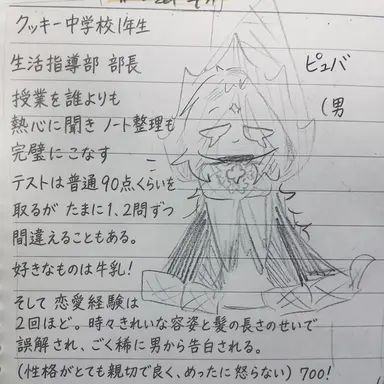 クッキー中学校1年生
生活指導部 部長
ピュバ
授業を誰よりも
(男
熱心に聞き ノート整理も
完璧にこなす
テストは普通90点くらいを
取るが たまに1、2問ずつ
間違えることもある。
好きなものは牛乳!
そして 恋愛経験は
2回ほど。時々きれいな容姿と髪の長さのせいで
誤解され、ごく稀に男から告白される。
(性格がとても親切で良く、めったに怒らない) 700!